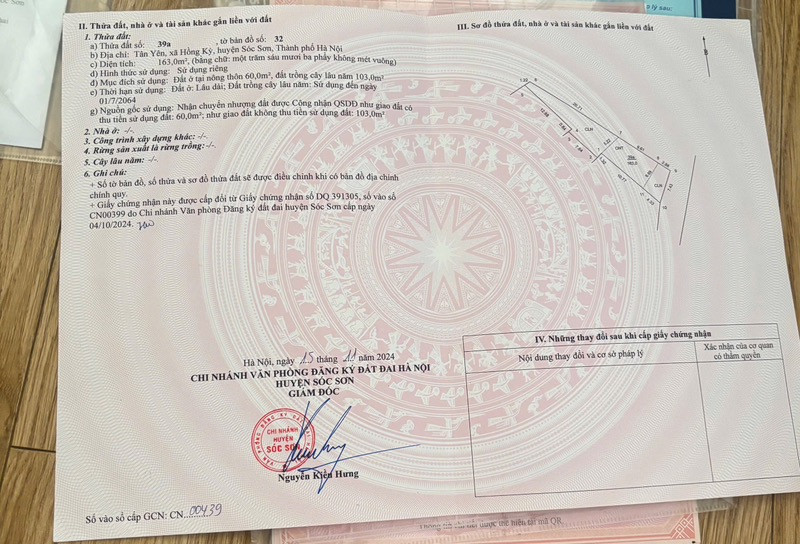 II. Thửa đất, nhà ở và tài sản khác gắn liền với đất
1. Thửa đất:
a) Thửa đất số: 39a , tờ bản đồ số: 32
b) Địa chỉ: Tân Yên, xã Hồng Kỳ, huyện Sóc Sơn, Thành phố Hà Nội
c) Diện tích: 163,0m², (bằng chữ: một trăm sáu mươi ba phẩy không mét vuông)
d) Hình thức sử dụng: Sử dụng riêng
đ) Mục đích sử dụng: Đất ở tại nông thôn 60,0m², đất trồng cây lâu năm 103,0m²
e) Thời hạn sử dụng: Đất ở: Lâu dài; Đất trồng cây lâu năm: Sử dụng đến ngày
01/7/2064
g) Nguồn gốc sử dụng: Nhận chuyển nhượng đất được Công nhận QSDĐ như giao đất có
thu tiền sử dụng đất: 60,0m²; như giao đất không thu tiền sử dụng đất: 103,0m²
2. Nhà ở: -/-
3. Công trình xây dựng khác: -/-
4. Rừng sản xuất là rừng trồng: -/-
5. Cây lâu năm: -/-
6. Ghi chú:
+ Số tờ bản đồ, số thửa và sơ đồ thửa đất sẽ được điều chỉnh khi có bản đồ địa chính
chính quy.
+ Giấy chứng nhận này được cấp đổi từ Giấy chứng nhận số DQ 391305, số vào sổ
CN00399 do Chi nhánh Văn phòng Đăng ký đất đai huyện Sóc Sơn cấp ngày
04/10/2024.
Hà Nội, ngày 15 tháng 11 năm 2024
CHI NHÁNH VĂN PHÒNG ĐĂNG KÝ ĐẤT ĐAI HÀ NỘI
HUYỆN SÓC SƠN
GIÁM ĐỐC
CHI NHÁNH
HUYỆN
SÓC SƠN
Nguyễn Kiên Hưng
Số vào sổ cấp GCN: CN 00439
III. Sơ đồ thửa đất, nhà ở và tài sản khác gắn liền với đất
B
CLN
ONT
39a
163,0
CLN
IV. Những thay đổi sau khi cấp giấy chứng nhận
Nội dung thay đổi và cơ sở pháp lý
Xác nhận của cơ quan
có thẩm quyền